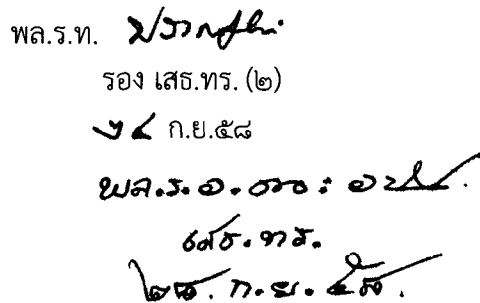 พล.ร.ท.
รอง เสธ.ทร. (๒)
๒๔ ก.ย.๕๘
พล.ร.อ.
เสธ.ทร.
๒๘. ก.ย. ๕๘.